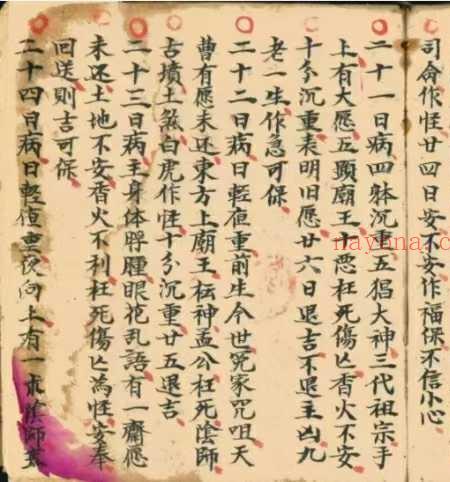 司命作怪廿四日安不安作福保不信小心
二十一日病四體沉重五猖大神三代祖宗手
上有大愿五顕廟王十恶枉死傷亡香火不安
十分沉重表明旧愿廿六日退吉不退主凶九
老一生作急可保
二十二日病日輕夜重前生今世冤家咒咀天
曹有愿未还東方上廟王坛神孟公枉死陰師
古墳土煞白虎作怪十分沉重廿五退吉
二十三日病主身体浮腫眼花乱語有一齋愿
未还土地不安香火不利枉死傷亡為怪安奉
回送則吉可保
二十四日病日輕夜重向上有一陰師
nayona